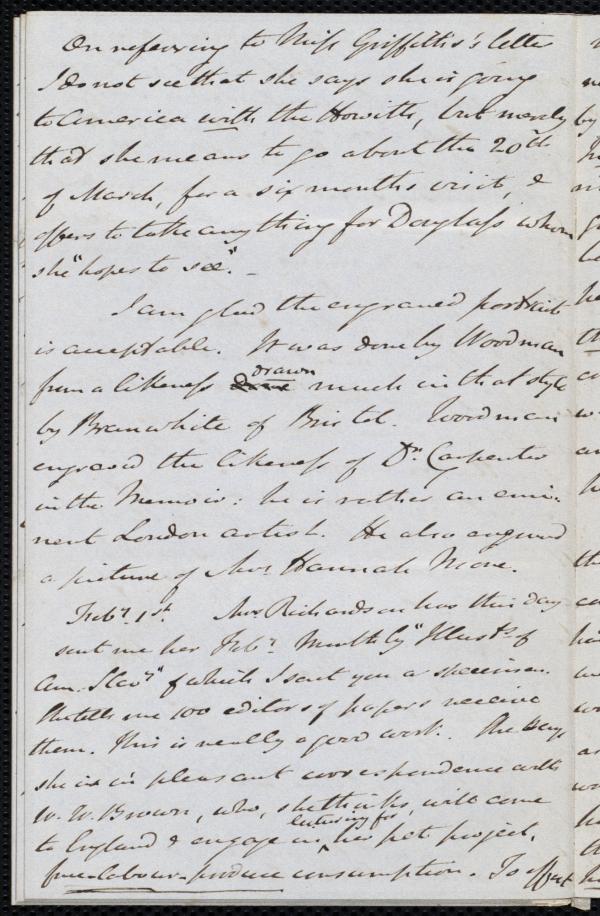 On referring to Miss Griffiths's letter
I do not see that she says she is going
to America with the Howitts, but merely
that she means to go about the 20th
of March, for a six months visit, &
offers to take anything for Douglass whom
she "hopes to see". –
I am glad the engraved portrait
is acceptable. It was done by Woodman
from a likeness drawn much in that style
by Branwhite of Bristol. Woodman
engraved the likeness of Dr. Carpenter
in the Memoir: he is rather an emi-
nent London artist. He also engraved
a picture of Mrs. Hannah More.
Feby. 1st. Mrs. Richardson has this day
sent me her Feby. Monthly "Illustns. of
Am. Slavy" of which I sent you a specimen.
She tells me 100 editors of papers receive
them. This is really a good work. She says
she is in pleasant correspondence with
W. W. Brown, who, she thinks, will come
to England & engage in lecturing for her pet project,
free-labour-produce consumption. To effect